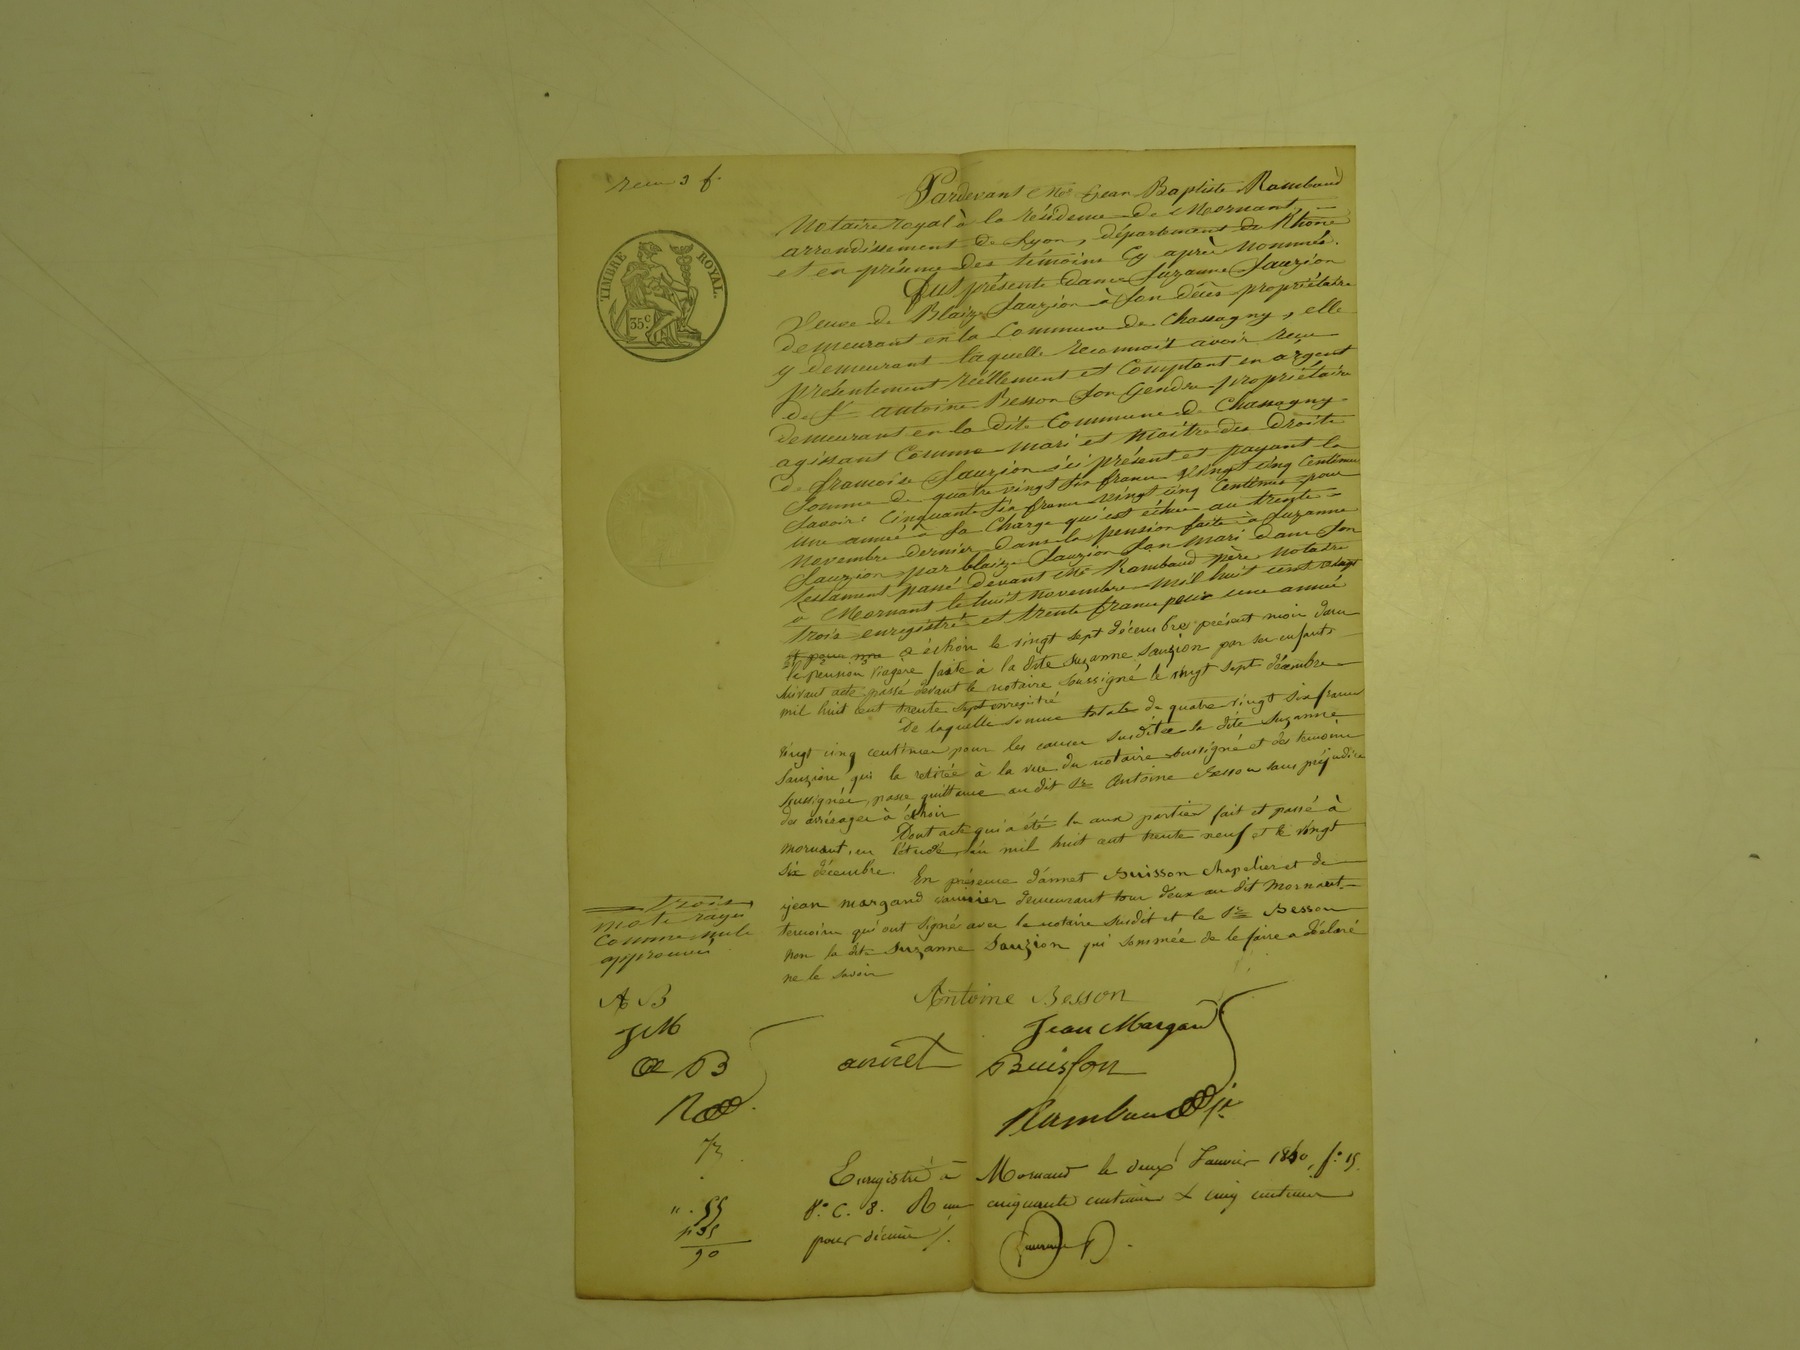 reçu 3 f.
TIMBRE ROYAL.
35 c
Pardevant Me Jean Baptiste Rambaud
Notaire royal à la résidence de Mornant,
arrondissement de Lyon, département du Rhône
et en présence des témoins cy après nommés.
Fut présente dame Suzanne Sauzion
veuve de Blaize Sauzion à son décès propriétaire
demeurant en la Commune de Chassagny, elle
y demeurant laquelle reconnait avoir reçu
présentement réellement et comptant en argent
de Sr antoine Besson son Gendre propriétaire
demeurant en la dite Commune de Chassagny
agissant Comme mari et maitre des droits
de francoise Sauzion ici présent et payant la
Somme de quatre vingt six francs vingt cinq Centimes
Savoir: Cinquante six francs vingt cinq Centimes pour
une année à sa Charge qui est échue au trente
novembre dernier dans la pension faite à Suzanne
Sauzion par blaize Sauzion son mari dans son
testament passé devant Me Rambaud père notaire
à Mornant le huit novembre mil huit cent vingt
trois enregistré et trente francs pour une année
et pour une à échoir le vingt sept décembre présent mois dans
la pension viagère faite à la dite Suzanne Sauzion par ses enfants
suivant acte passé devant le notaire soussigné le vingt sept décembre
mil huit cent trente sept enregistré
De laquelle somme totale de quatre vingt six francs
vingt cinq centimes pour les causes susdites la dite Suzanne
Sauzion qui la retirée à la vue du notaire soussigné et des temoins
soussignés, passe quittance au dit Sr Antoine Besson sans préjudice
des arrérages à échoir
Dont acte qui a été lu aux parties fait et passé à
mornant, en l'étude, l'an mil huit cent trente neuf et le vingt
six décembre. En présence d'annet Buisson chapelier et de
jean margand demeurant tous deux au dit Mornant
temoins qui ont signé avec le notaire susdit et le Sr Besson
non la dite Suzanne Sauzion qui sommée de le faire a déclaré
ne le savoir
trois
mots rayés
comme nuls
approuvés
A B
Antoine Besson
J M
Jean Margand
a B
annet Buisson
R
Rambaud
Enregistré à Mornant le deux Janvier 1840, fo 15
Vo C. 8. R cinquante centimes & cinq centimes
pour décime
" . 55
" 35
90